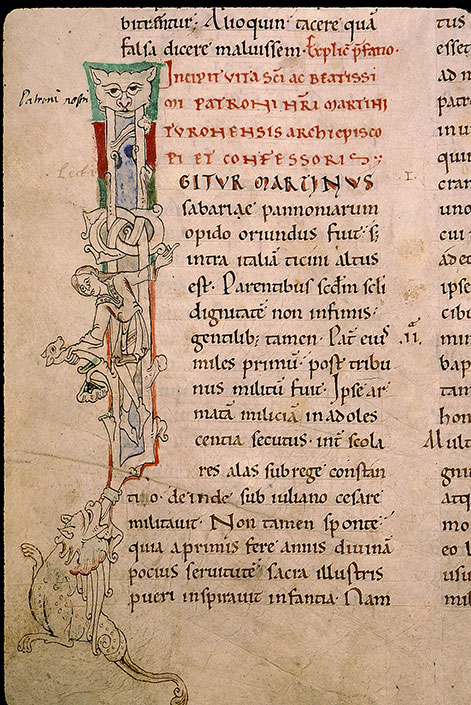 bitramur. Alioquin tacere quā
falsa dicere maluissem. Explic p̄fatio.
INCIPIT VITA SC̄I AC BEATISSI
MI PATRONI N̄RI MARTINI
TURONENSIS ARCHIEPISCO
PI ET CONFESSORIS
Patroni nostri
GITUR MARTINUS
sabariae pannoniarum
opido oriundus fuit. s;
intra italiā ticini altus
est. Parentibus scd̄m scłi
dignitatē non infimis.
gentilib; tamen. Pat̄ eiꝰ .ii.
miles primū. post tribu
nus militū fuit. Ipse ar
matā miliciā in adoles
centia secutus. int̄ scola
res alas sub rege constan
tio. deinde sub iuliano cesare
militauit. Non tamen sponte.
quia a primis fere annis diuinā
pocius seruitutē sacra illustris
pueri inspirauit infantia. Nam
tus
esset
ad n
patr
in u
quin
cran
uno
cui
ad ec
ipse
cibu
min
bap
tan
hon
Mult
gnu
atq
mo
eo
usu
mil